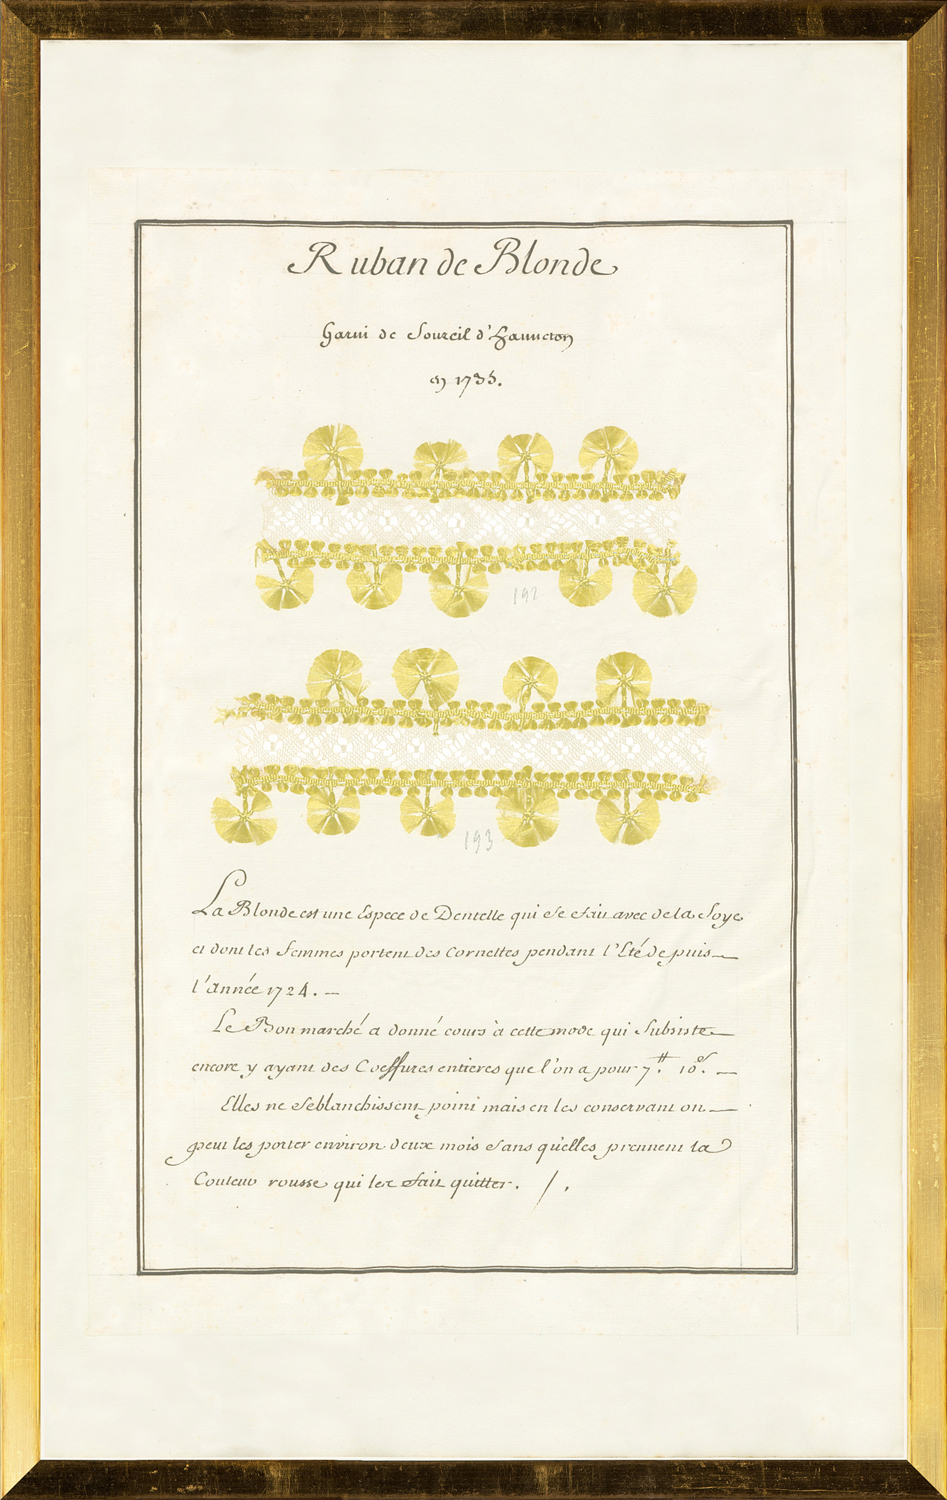 Ruban de Blonde
Garni de Sourcil d'hanneton
en 1735.
192
193
La Blonde est une Espece de Dentelle qui se fait avec de la Soye
et dont les femmes portent des Cornettes pendant l'Eté depuis
l'année 1724. —
Le Bon marché a donné cours à cette mode qui Subsiste —
encore y ayant des Coeffures entieres que l'on a pour 7.ᵗᵗ 10.ˢ —
Elles ne se blanchissent point mais en les conservant on —
peut les porter environ deux mois sans qu'elles prennent la
Couleur rousse qui les fait quitter. /.